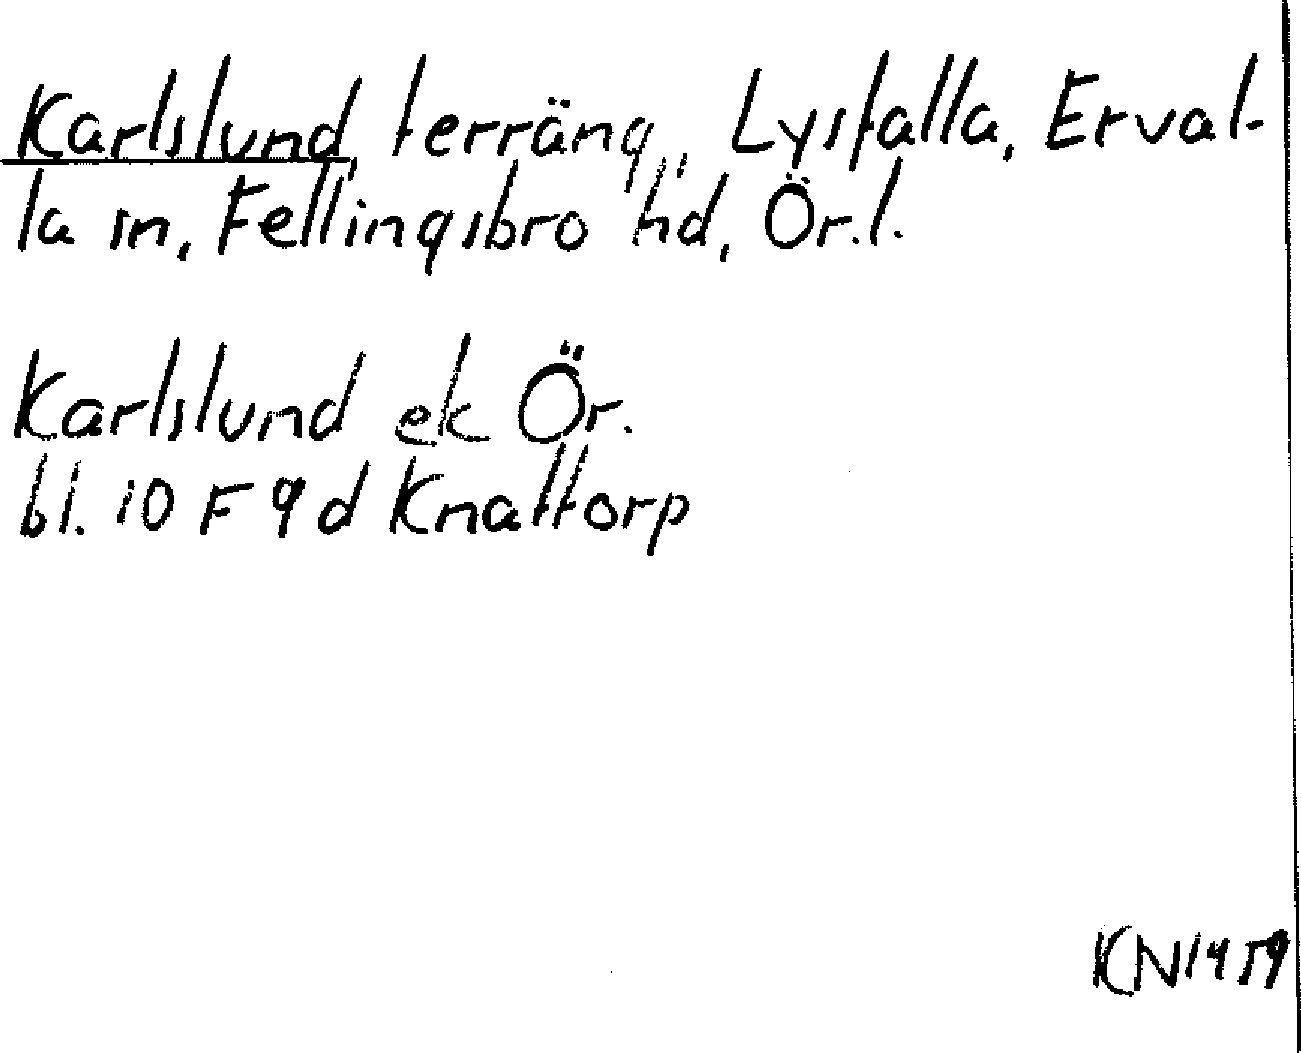 Karlslund, terräng,, Lysfalla, Erval-
la sn, Fellingsbro hd, Ör.l.
Karlslund ek Ör.
bl. 10 F 9 d Knaltorp
KN1459